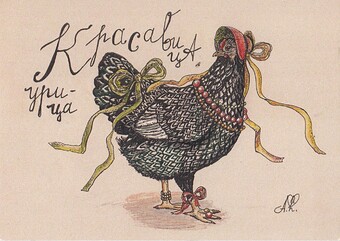 Красави
ца
ури-
ца
А.К.